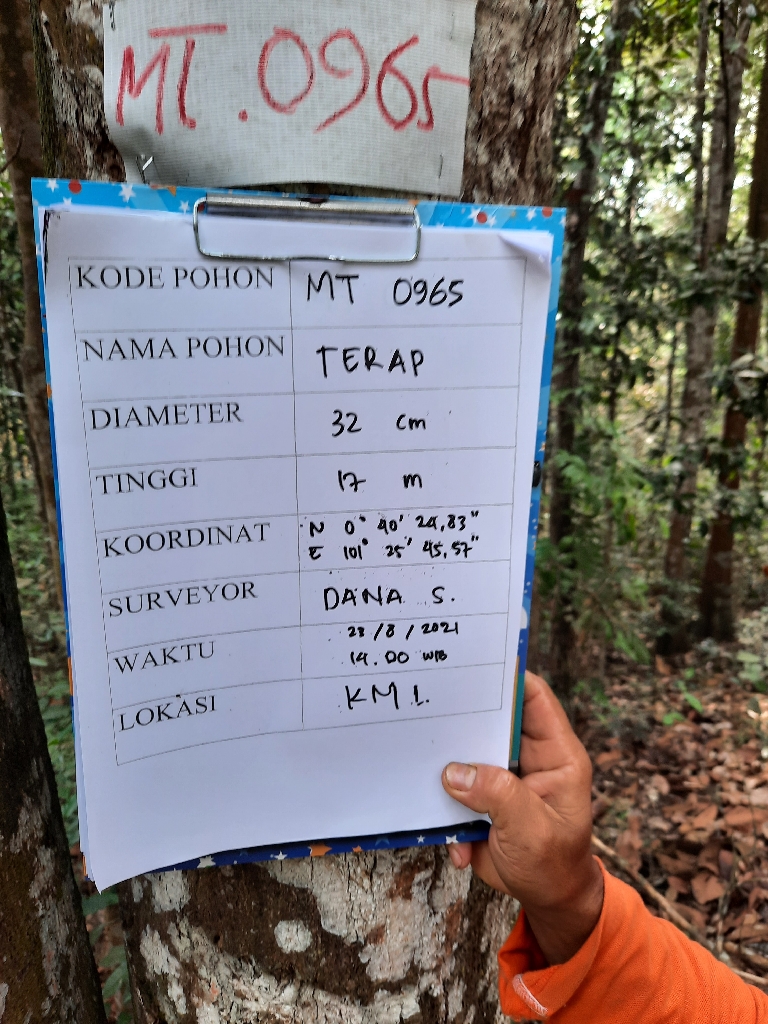 MT.0965
KODE POHON MT 0965
NAMA POHON TERAP
DIAMETER 32 cm
TINGGI 17 m
KOORDINAT N 0° 40' 24,83"
E 101° 25' 45,57"
SURVEYOR DANA S.
WAKTU 23/8/2021
14.00 WIB
LOKASI KM 1.